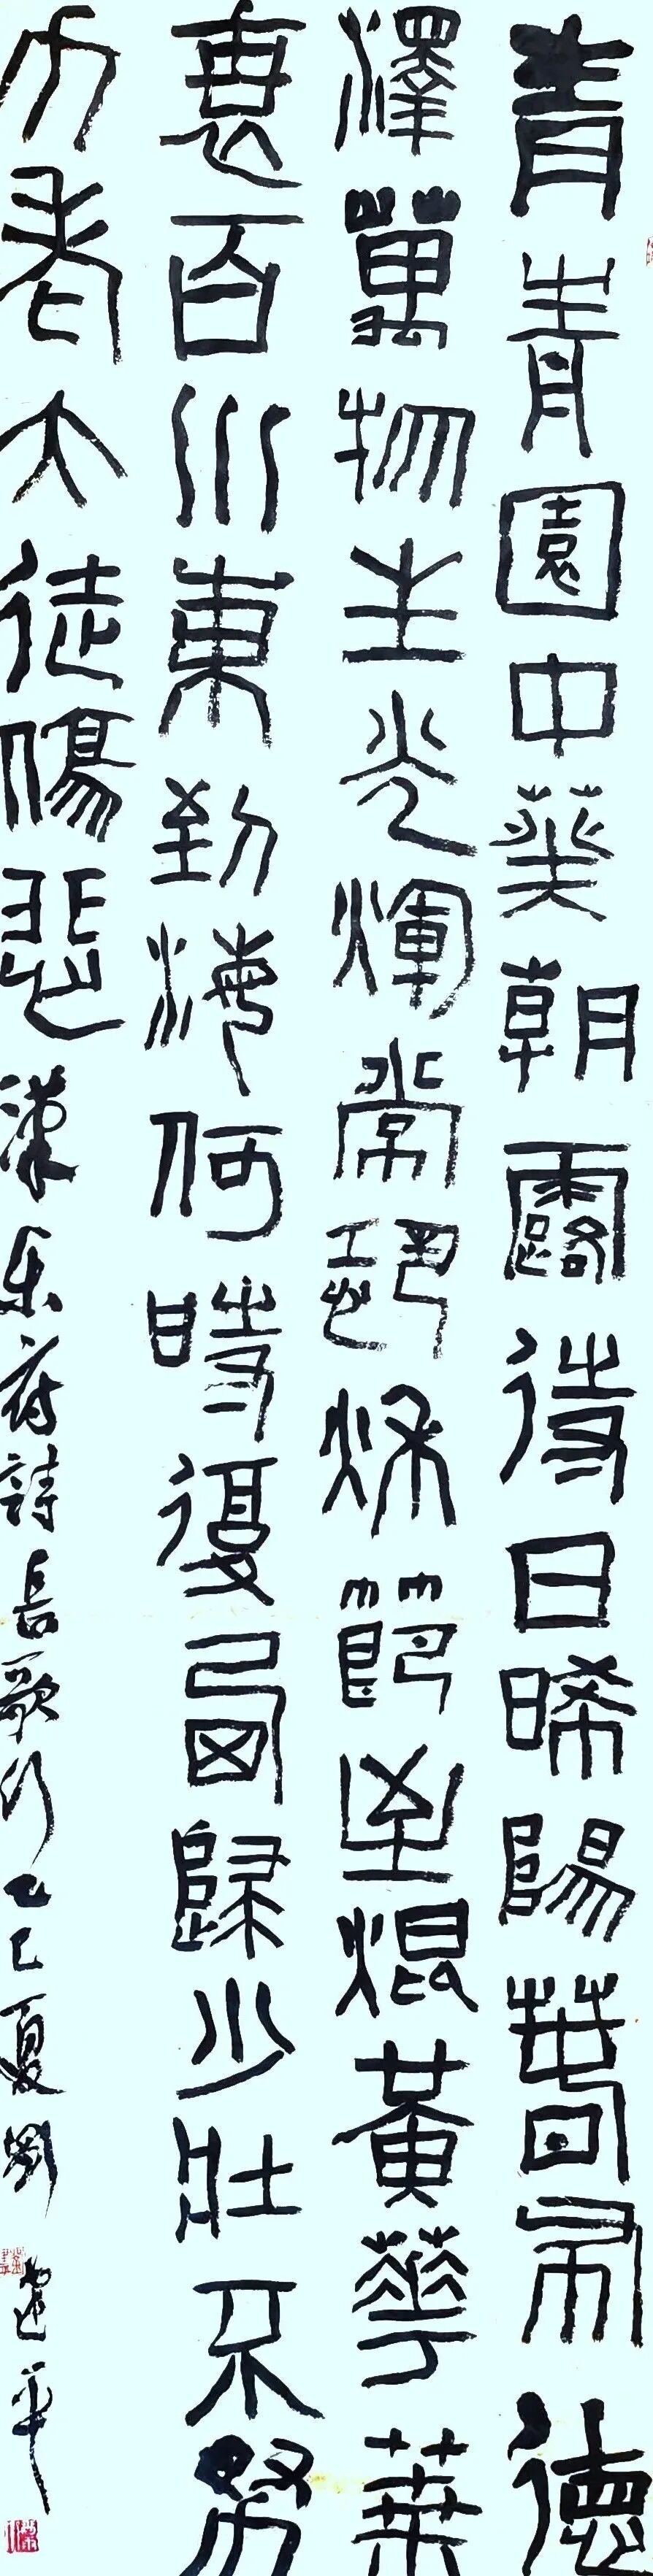 青青園中葵朝露待日晞陽春布德
澤萬物生光煇常恐秋節至焜黃華葉
衰百川東到海何時復西歸少壯不努
力老大徒傷悲漢乐府詩長歌行乙巳夏劉建平